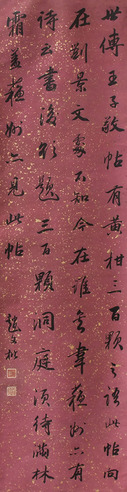 世傳王子敬帖有黄柑三百顆之語此帖向
在劉景文處不知今在誰家韋蘇州亦有
詩云書後欲題三百顆洞庭須待滿林
霜蓋蘇州亦見此帖